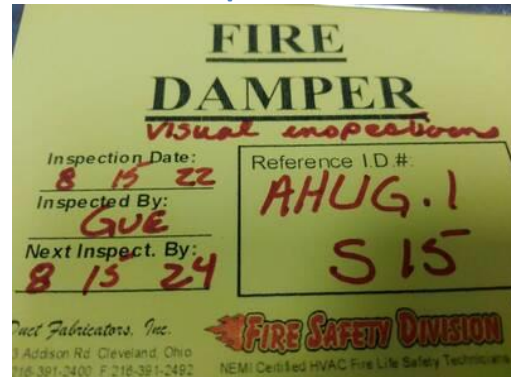 FIRE
DAMPER
Visual inspections
Inspection Date:
8 15 22
Inspected By:
GUE
Next Inspect. By:
8 15 24
Reference I.D #:
AHUG.1
S15
Duct Fabricators, Inc.
3 Addison Rd. Cleveland, Ohio
216-391-2400 F 216-391-2492
FIRE SAFETY DIVISION
NEMI Certified HVAC Fire Life Safety Technicians